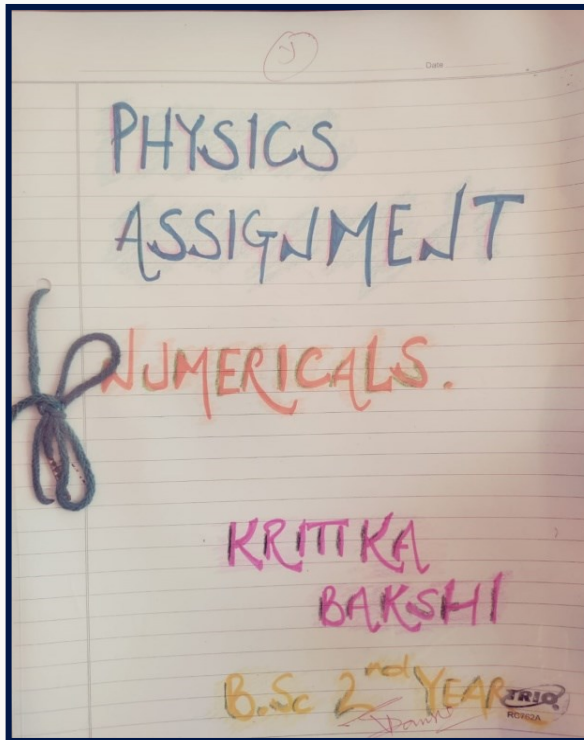 Date
PHYSICS
ASSIGNMENT
NUMERICALS.
KRITIKA
BAKSHI
B.Sc 2nd YEAR
TRIO